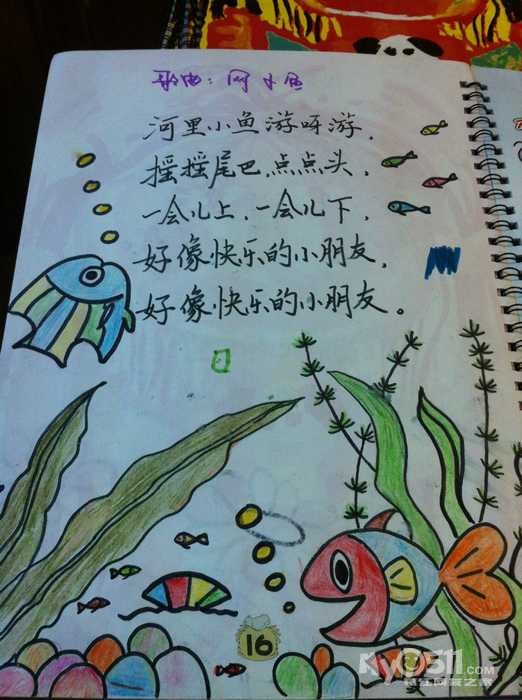 歌曲：网小鱼
河里小鱼游呀游，
摇摇尾巴点点头，
一会儿上，一会儿下，
好像快乐的小朋友，
好像快乐的小朋友。
16
Ky0511.com